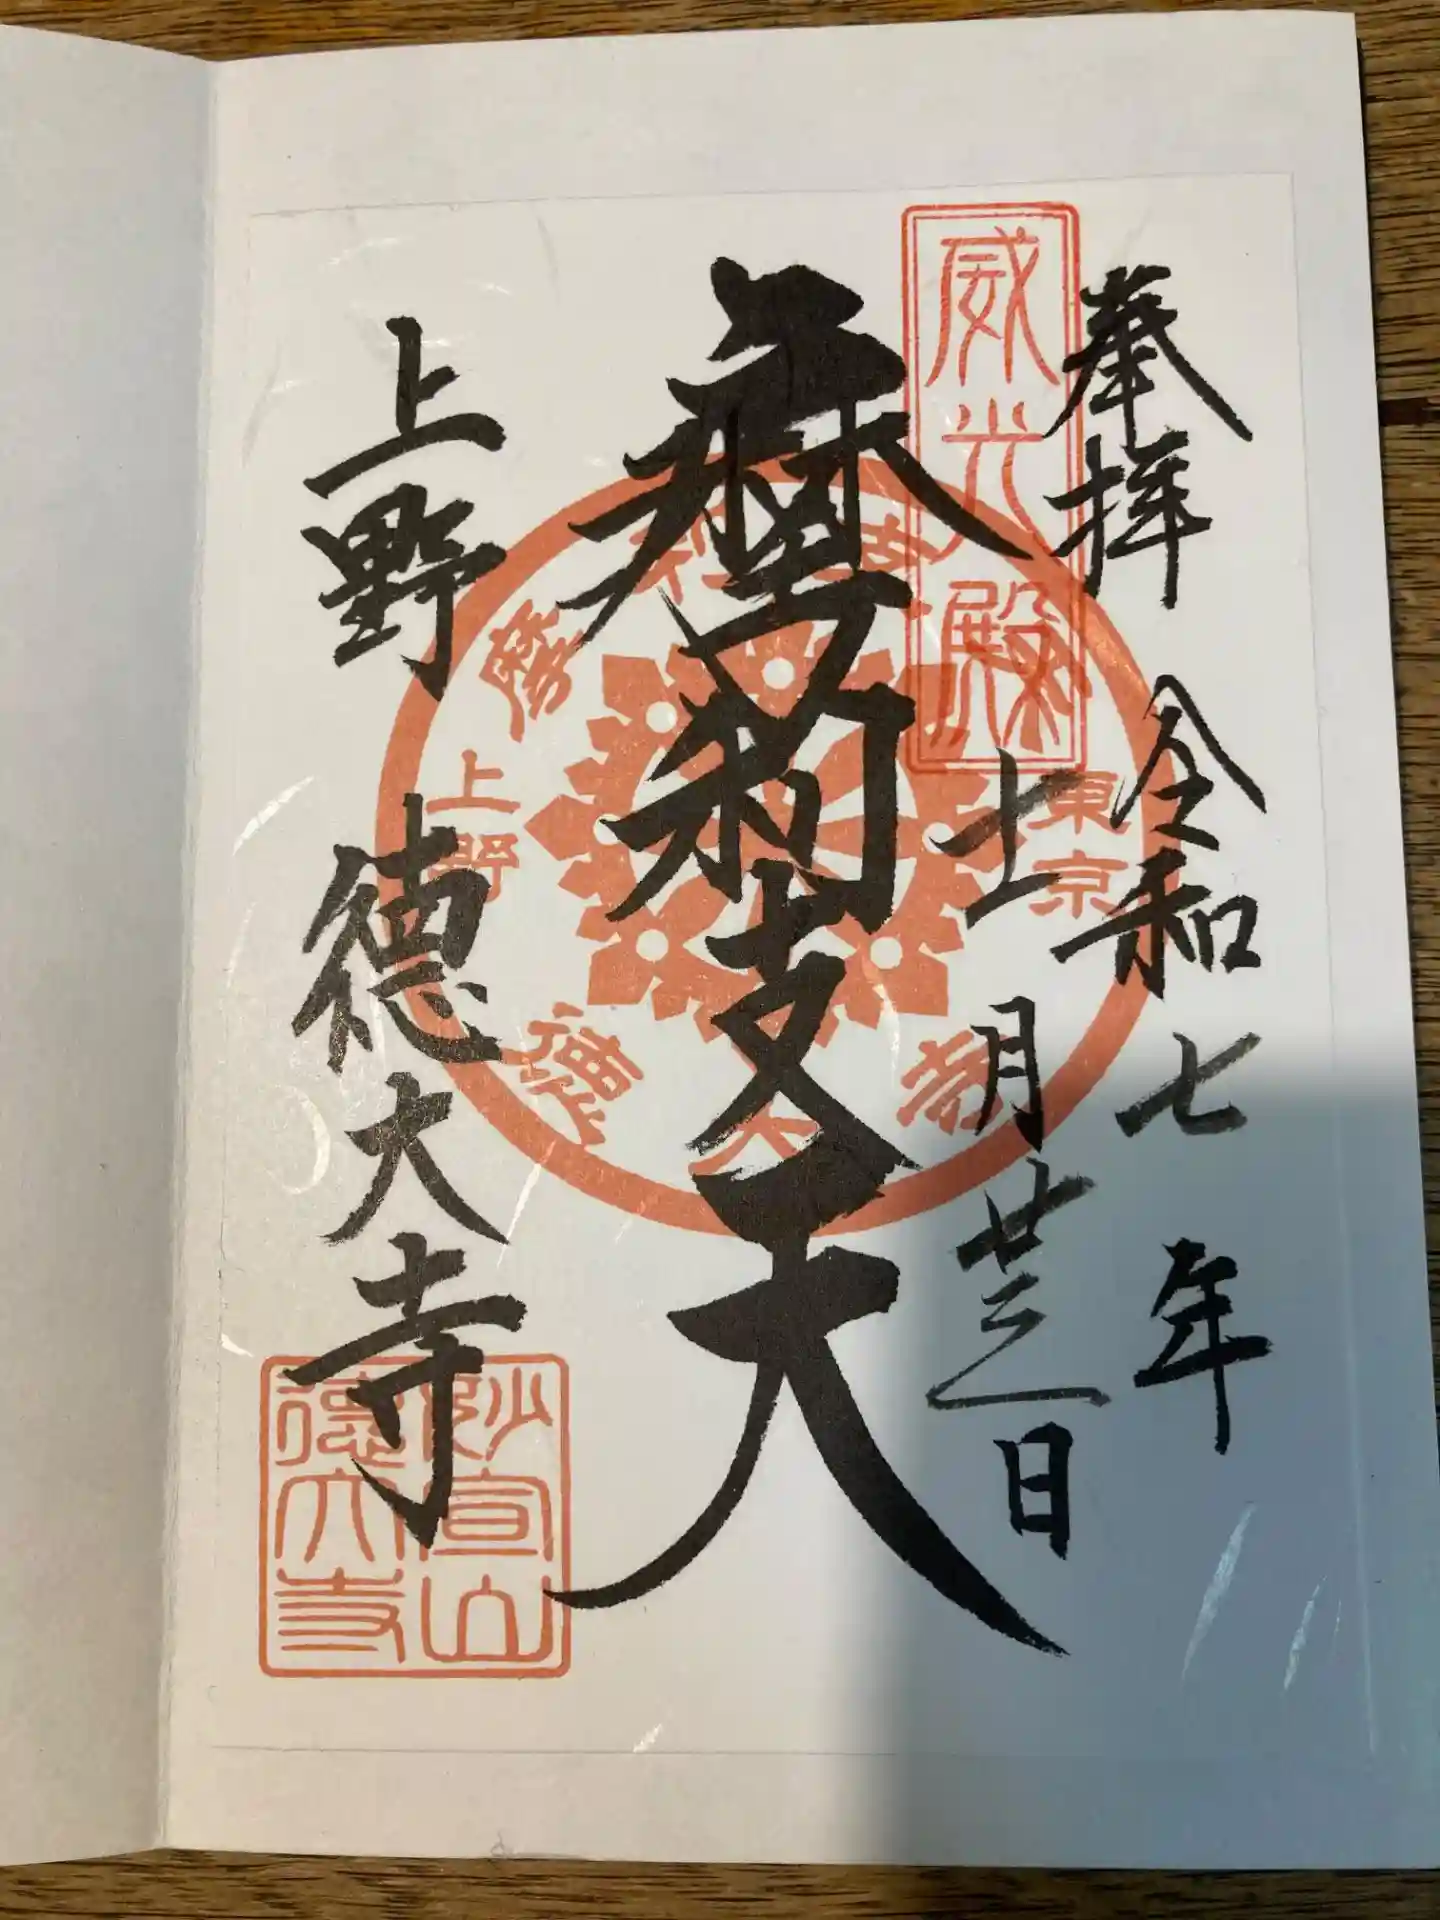 奉拝 令和七年
十一月廿三日
威光殿
摩利支天
東京
上野
摩利支天
徳大寺
上野 徳大寺
妙宣山
徳大寺